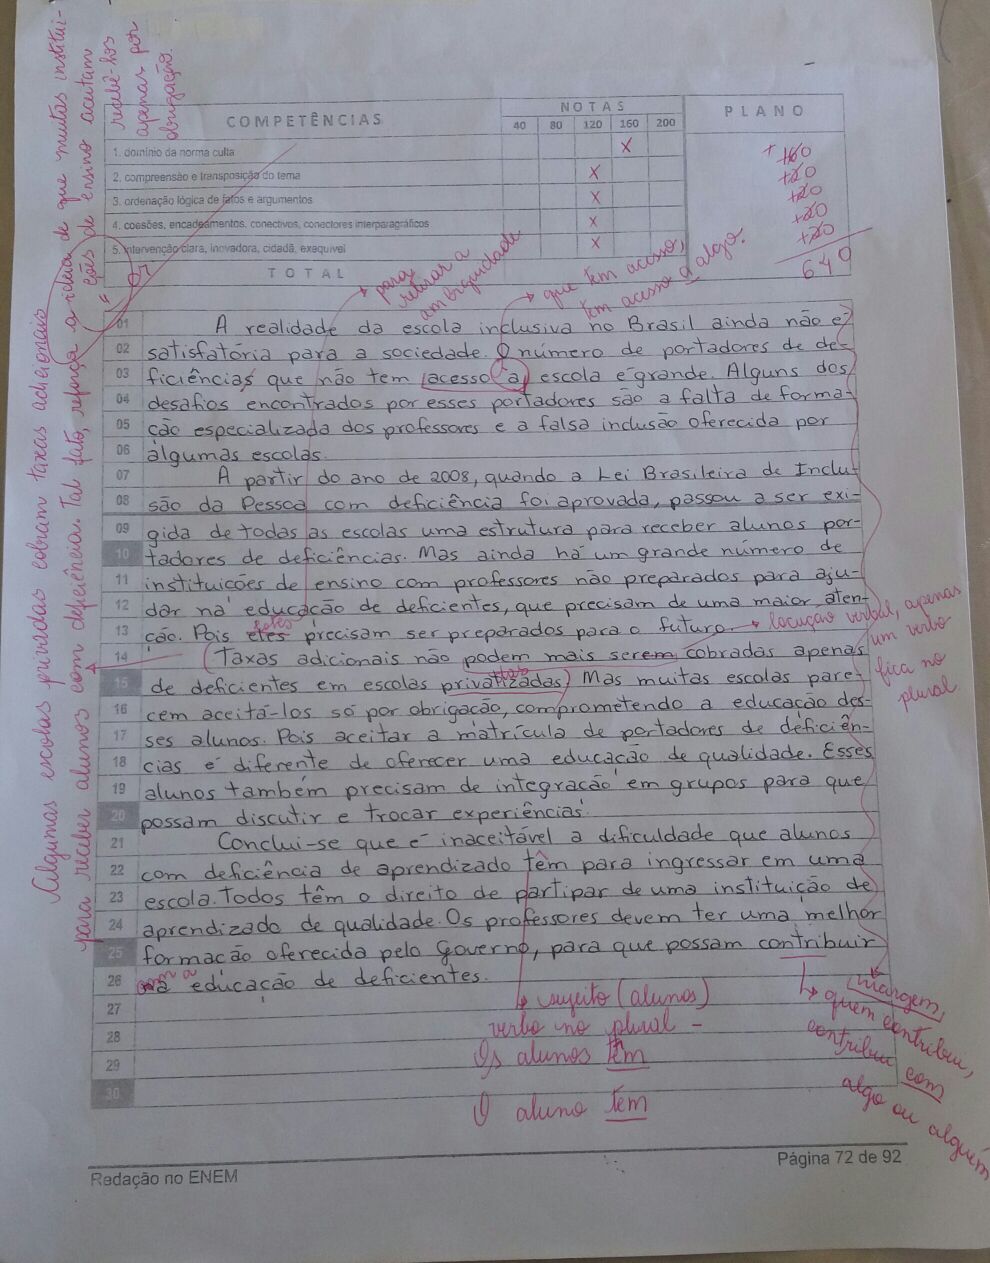 recebê-los
apenas por
obrigação.
COMPETÊNCIAS
NOTAS
PLANO
40 80 120 160 200
1. domínio da norma culta X
2. compreensão e transposição do tema X
3. ordenação lógica de fatos e argumentos X
4. coesões, encadeamentos, conectivos, conectores interparagráficos X
5. intervenção clara, inovadora, cidadã, exequível X
TOTAL
+ 160
+120
+120
+120
+120
640
para
retirar a
ambiguidade
que tem acesso,
tem acesso a algo.
01 A realidade da escola inclusiva no Brasil ainda não é
02 satisfatória para a sociedade. O número de portadores de de-
03 ficiências que não tem acesso à escola é grande. Alguns dos
04 desafios encontrados por esses portadores são a falta de forma-
05 ção especializada dos professores e a falsa inclusão oferecida por
06 algumas escolas.
07 A partir do ano de 2008, quando a Lei Brasileira de Inclu-
08 são da Pessoa com deficiência foi aprovada, passou a ser exi-
09 gida de todas as escolas uma estrutura para receber alunos por-
10 tadores de deficiências. Mas ainda há um grande número de
11 instituições de ensino com professores não preparados para aju-
12 dar na educação de deficientes, que precisam de uma maior aten-
13 ção. Pois eles precisam ser preparados para o futuro.
estes
locução verbal, apenas
um verbo
fica no
plural
14 Taxas adicionais não podem mais serem cobradas apenas
15 de deficientes em escolas privatizadas. Mas muitas escolas pare-
16 cem aceitá-los só por obrigação, comprometendo a educação des-
17 ses alunos. Pois aceitar a matrícula de portadores de deficiên-
18 cias é diferente de oferecer uma educação de qualidade. Esses
19 alunos também precisam de integração em grupos para que
20 possam discutir e trocar experiências.
21 Conclui-se que é inaceitável a dificuldade que alunos
22 com deficiência de aprendizado têm para ingressar em uma
23 escola. Todos têm o direito de partipar de uma instituição de
24 aprendizado de qualidade. Os professores devem ter uma melhor
25 formação oferecida pelo Governo, para que possam contribuir
com a
26 na educação de deficientes.
27
28
29
30
sujeito (alunos)
verbo no plural -
Os alunos têm
O aluno tem
margem
quem contribui,
contribui com
algo ou alguém
Algumas escolas privadas cobram taxas adicionais
para receber alunos com deficiência. Tal fato, reforça a ideia de que muitas institui-
ções de ensino aceitam
Redação no ENEM
Página 72 de 92